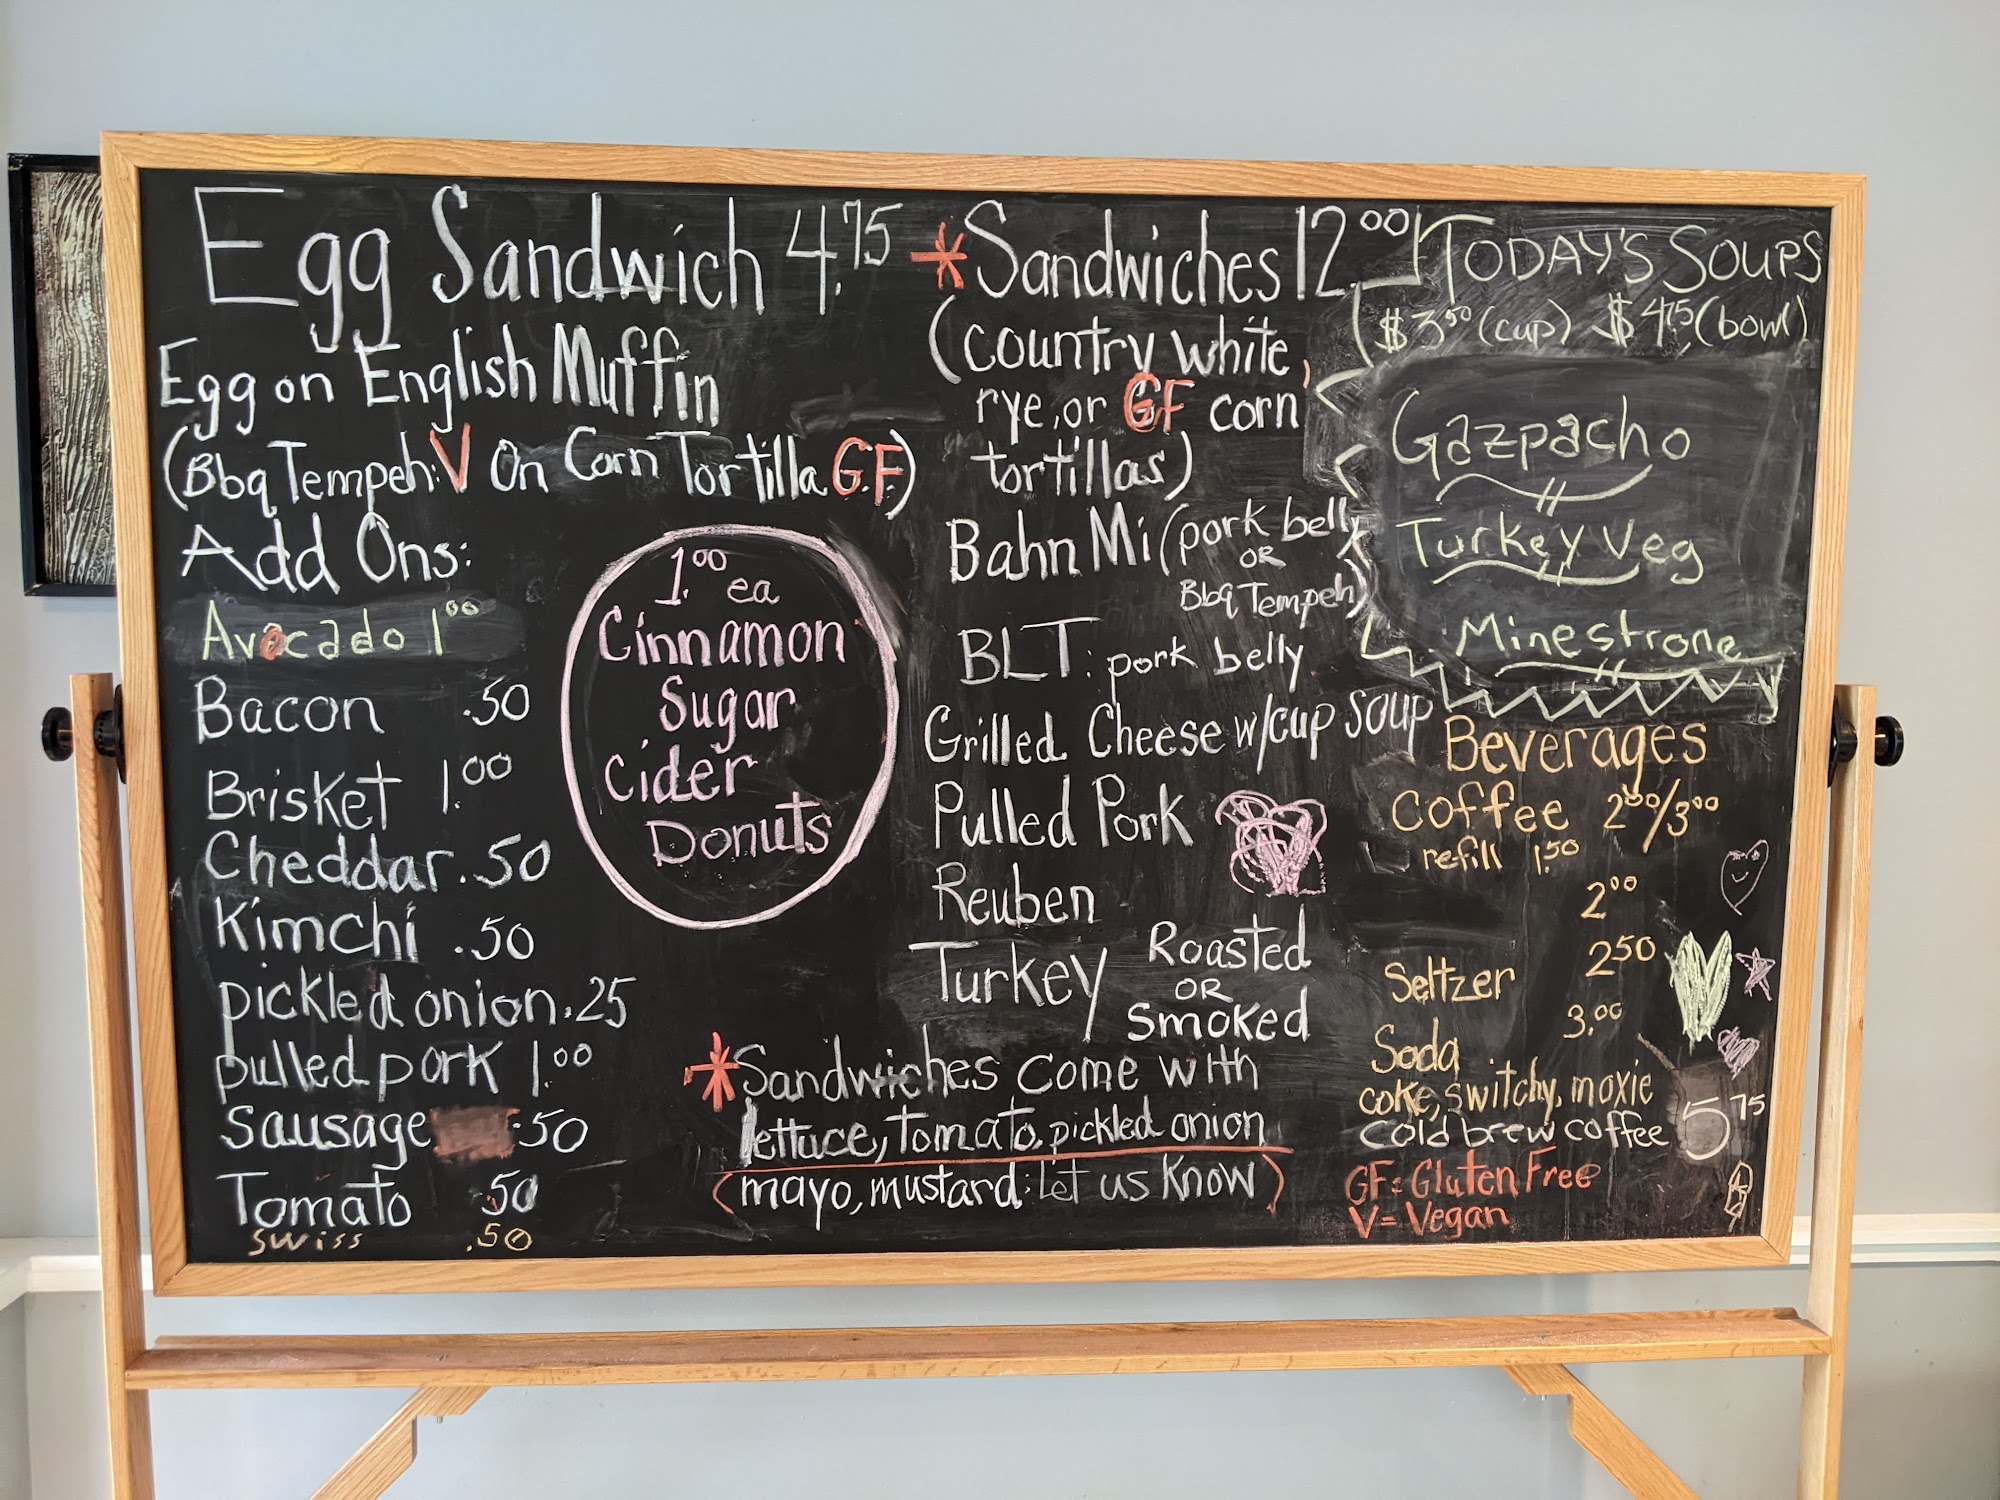 Egg Sandwich 4.75
Egg on English Muffin
(Bbq Tempeh: V On Corn Tortilla G.F.)
Add Ons:
Avocado 1.00
Bacon .50
Brisket 1.00
Cheddar .50
Kimchi .50
pickled onion .25
pulled pork 1.00
Sausage .50
Tomato .50
swiss .50
1.00 ea
Cinnamon
Sugar
Cider
Donuts
*Sandwiches 12.00
(country white,
rye, or GF corn
tortillas)
Bahn Mi (pork belly
OR
Bbq Tempeh)
BLT: pork belly
Grilled Cheese w/cup soup
Pulled Pork
Reuben
Turkey Roasted
OR
Smoked
*Sandwiches come with
lettuce, tomato, pickled onion
(mayo, mustard: let us know)
TODAY'S SOUPS
$3.50 (cup) $4.75 (bowl)
Gazpacho
Turkey Veg
Minestrone
Beverages
Coffee 2.00/3.00
refill 1.50
2.00
Seltzer 2.50
Soda 3.00
coke, switchy, moxie
cold brew coffee 5.75
GF = Gluten Free
V = Vegan